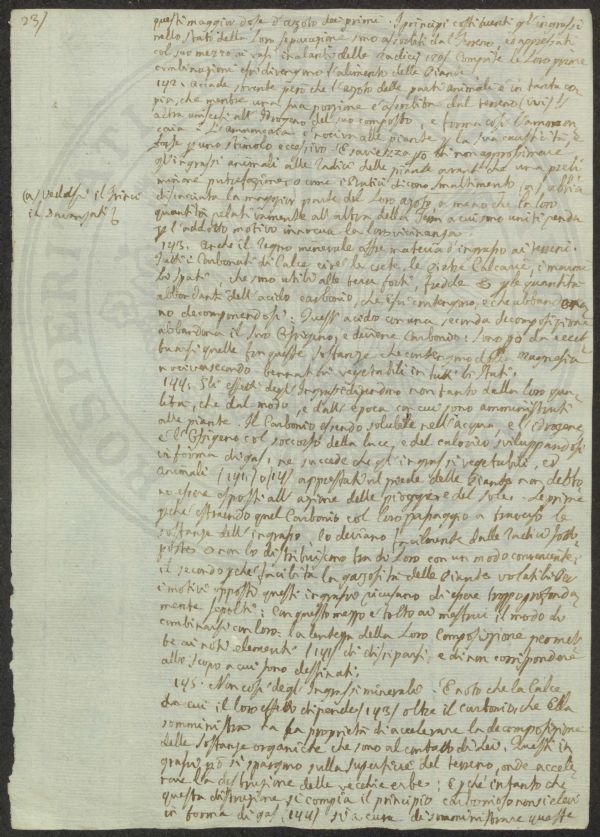 23/
questi maggior dose d'azoto dei primi. I principj costituenti gl'ingrassi
nello stato della loro separazione sono assorbiti dal Terreno, ed appressati
col suo mezzo ai vasi inalanti delle Radici 139/. Compite le loro prime
combinazioni essi divengono l'alimento delle Piante.
142. Accade sovente però che l'azoto delle parti animali è in tanta co-
pia, che mentre una sua porzione è assorbita dal terreno
altra uniscesi all'Idrogeno del suo composto, e forma così l'ammon-
iaca. L'ammoniaca è nociva alle piante per la sua causticità, e
forse per uno stimolo eccessivo. È saviezza perciò il non approssimare
gl'ingrassi animali alle Radici delle piante avanti che una preli-
minare putrefazione, o come i Pratici dicono smaltimento (a), abbia
discacciata la maggior parte del loro azoto, a meno che la loro
quantità relativamente all'altra della Terra a cui sono uniti renda
per l'addotto motivo innocua la loro vicinanza.
(a) Vedasi il Trinci
il Davanzati
143. Anche il Regno minerale offre materia d'ingrasso ai terreni.
Tutti i Carbonati di Calce cioè la creta, le Pietre Calcarie, i marmi
li spati, che sono utili alle terre forti, fredde per la quantità
abbondante dell'acido carbonio, che essi contengono, e che abbandona-
no decomponendosi. Quest'acido con una seconda decomposizione
abbandona il suo Ossigeno, e diviene Carbonio. Sono però da eccet-
tuarsi quelle fra queste sostanze che contengono della magnesia
nociva secondo Bergman ai vegetabili in tutti li stati.
144. Gli effetti degl'Ingrassi dipendono non tanto dalla loro qua-
lità, che dal modo, e dall'epoca con cui sono amministrati
alle piante. Il Carbonio essendo solubile nell'acqua, e l'Idrogene
e l'Ossigeno col soccorso della luce, e del calorico sviluppandosi
in forma di gas, ne succede che gl'ingrassi vegetabili, ed
animali (141) appressati al piede delle Piante non debbo-
no essere esposti all'azione delle piogge e del sole. Le prime
perché estraendo quel Carbonio col loro passaggio a traverso le
sostanze dell'ingrasso, lo deviano facilmente dalle Radici sotto
poste, o non lo distribuiscono tra di Loro con un modo conveniente;
il secondo perché facilita la gassosità delle Piante volatili. Per
i motivi opposti questi ingrassi ricusano di essere troppo profonda-
mente sepolti: con questo mezzo è tolto ai mestrui il modo di
combinarsi con loro: la lentezza della Loro composizione permet-
te ai noti elementi (141) di dissiparsi, e di non corrispondere
allo scopo a cui sono destinati.
145. Non così degl'Ingrassi minerali. È noto che la Calce
da cui il loro effetto dipende (143) oltre il carbonio, che Ella
somministra ha la proprietà di accelerare la decomposizione
delle sostanze organiche che sono al contatto di Lei. Questi in-
grassi perciò si spargono sulla superficie del terreno, onde accele-
rare la distruzione delle vecchie erbe; e perché intanto che
questa distruzione si compia il principio carbonioso non si elevi
in forma di gas (144) si ha cura di somministrare queste